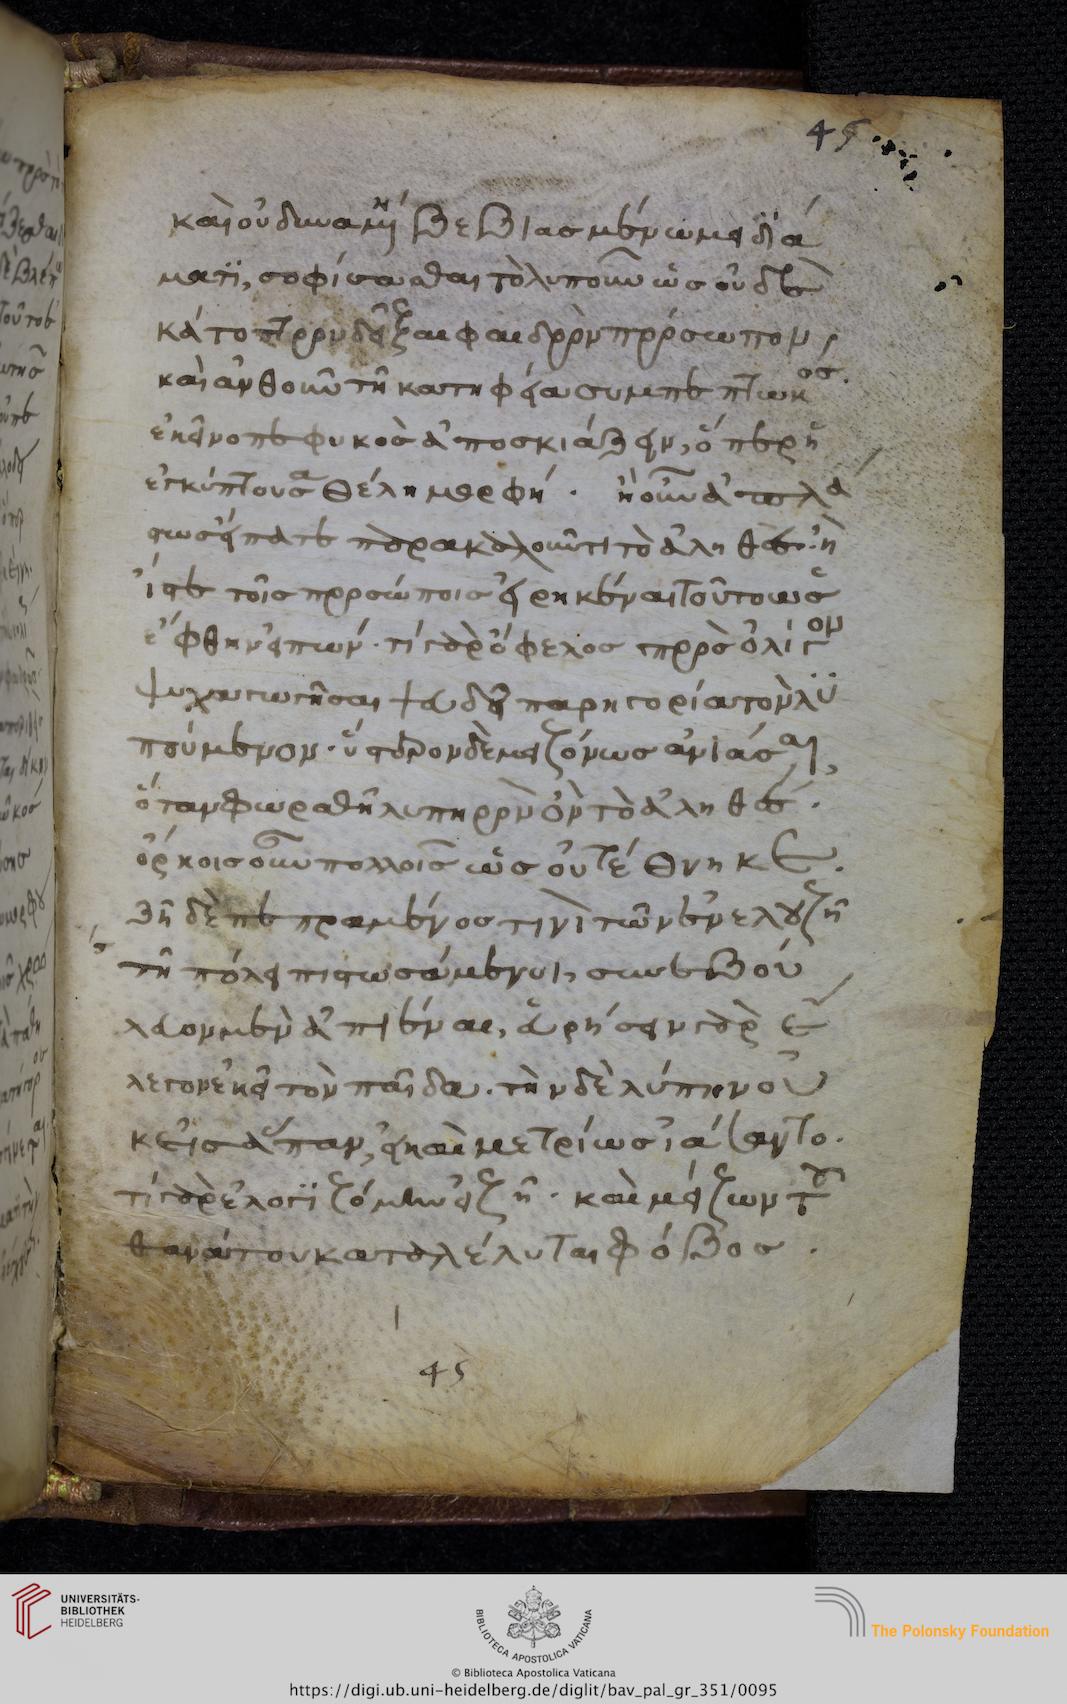 45
καὶ οὐ δυναμένη βεβιασμένω μειδιά
ματι, σοφίσασθαι τὸ λυποῦν ὡς οὐδὲ
κάτοπτρον δεῖξαι φαιδρὸν πρόσωπον,
καὶ ἀνθοῦν τῆ κατηφεία συμπεπτωκός.
ἐκεῖνο πεφυκὸς ἀποσκιάζειν, ὅπερ ἡ
ἐγκύπτουσα θέλη μορφή. ἢ οὖν ἀσφαλ
ῶς εἴπατε παρακαλοῦντι τὸ ἀληθές· ἢ
ἴστε τοῖς προσώποις εἰρηκέναι τοῦτο ὡς
ἔφθην εἰπών. τί γὰρ ὄφελος πρὸς ὀλίγον
ψυχαγωγῆσαι ψευδεῖ παρηγορία τὸν λυ
πούμενον. ὕστερον δὲ μειζόνως ἀνιάσαι,
ὅταν φωραθῆ λυπηρὸν ὂν τὸ ἀληθές.
ὅρκοις οὖν πολλοῖς ὡς οὐ τέθνηκε.
ζῆ δὲ πεπραμένος τινὶ τῶν ἐν ἐλούζη
τῆ πόλει πιστωσάμενοι, συνεβού
λευον μὲν ἀπιέναι, εὑρήσειν γὰρ ἔ
λεγον ἐκεῖ τὸν παῖδα. τὴν δὲ λύπην οὐ
κ εἰς ἅπαν, εἰ καὶ μετρίως ἰάσαντο.
τί γὰρ ἐλογιζόμην εἰ ζῆ. καί με ζῶντος
θανάτου καταλέλυται φόβος.
45
UNIVERSITÄTS-
BIBLIOTHEK
HEIDELBERG
BIBLIOTECA APOSTOLICA VATICANA
The Polonsky Foundation
© Biblioteca Apostolica Vaticana
https://digi.ub.uni-heidelberg.de/diglit/bav_pal_gr_351/0095